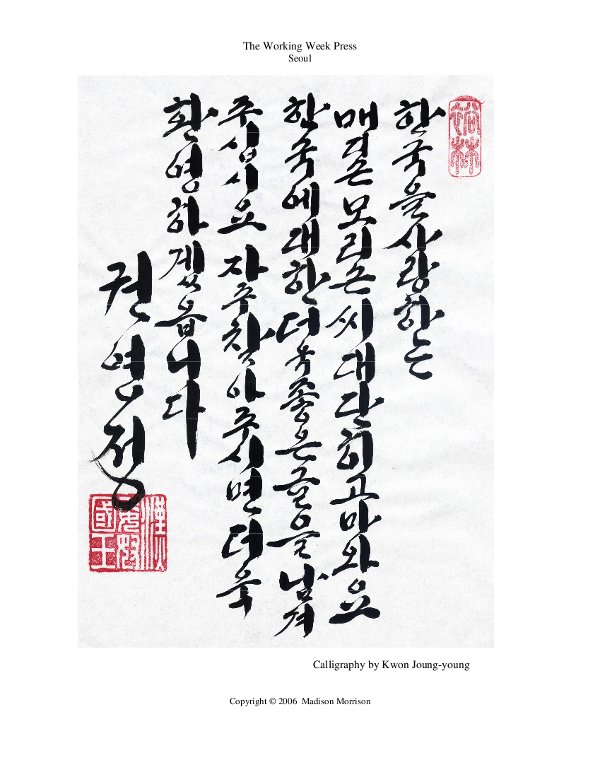 The Working Week Press
Seoul
한국을 사랑하는
매디슨 모리슨 씨 대단히 고마와요
한국에 대한 더욱 좋은 글을 남겨
주십시요 자주 찾아 주시면 더욱
환영하겠읍니다
권영정
漢委奴國王
Calligraphy by Kwon Joung-young
Copyright © 2006 Madison Morrison